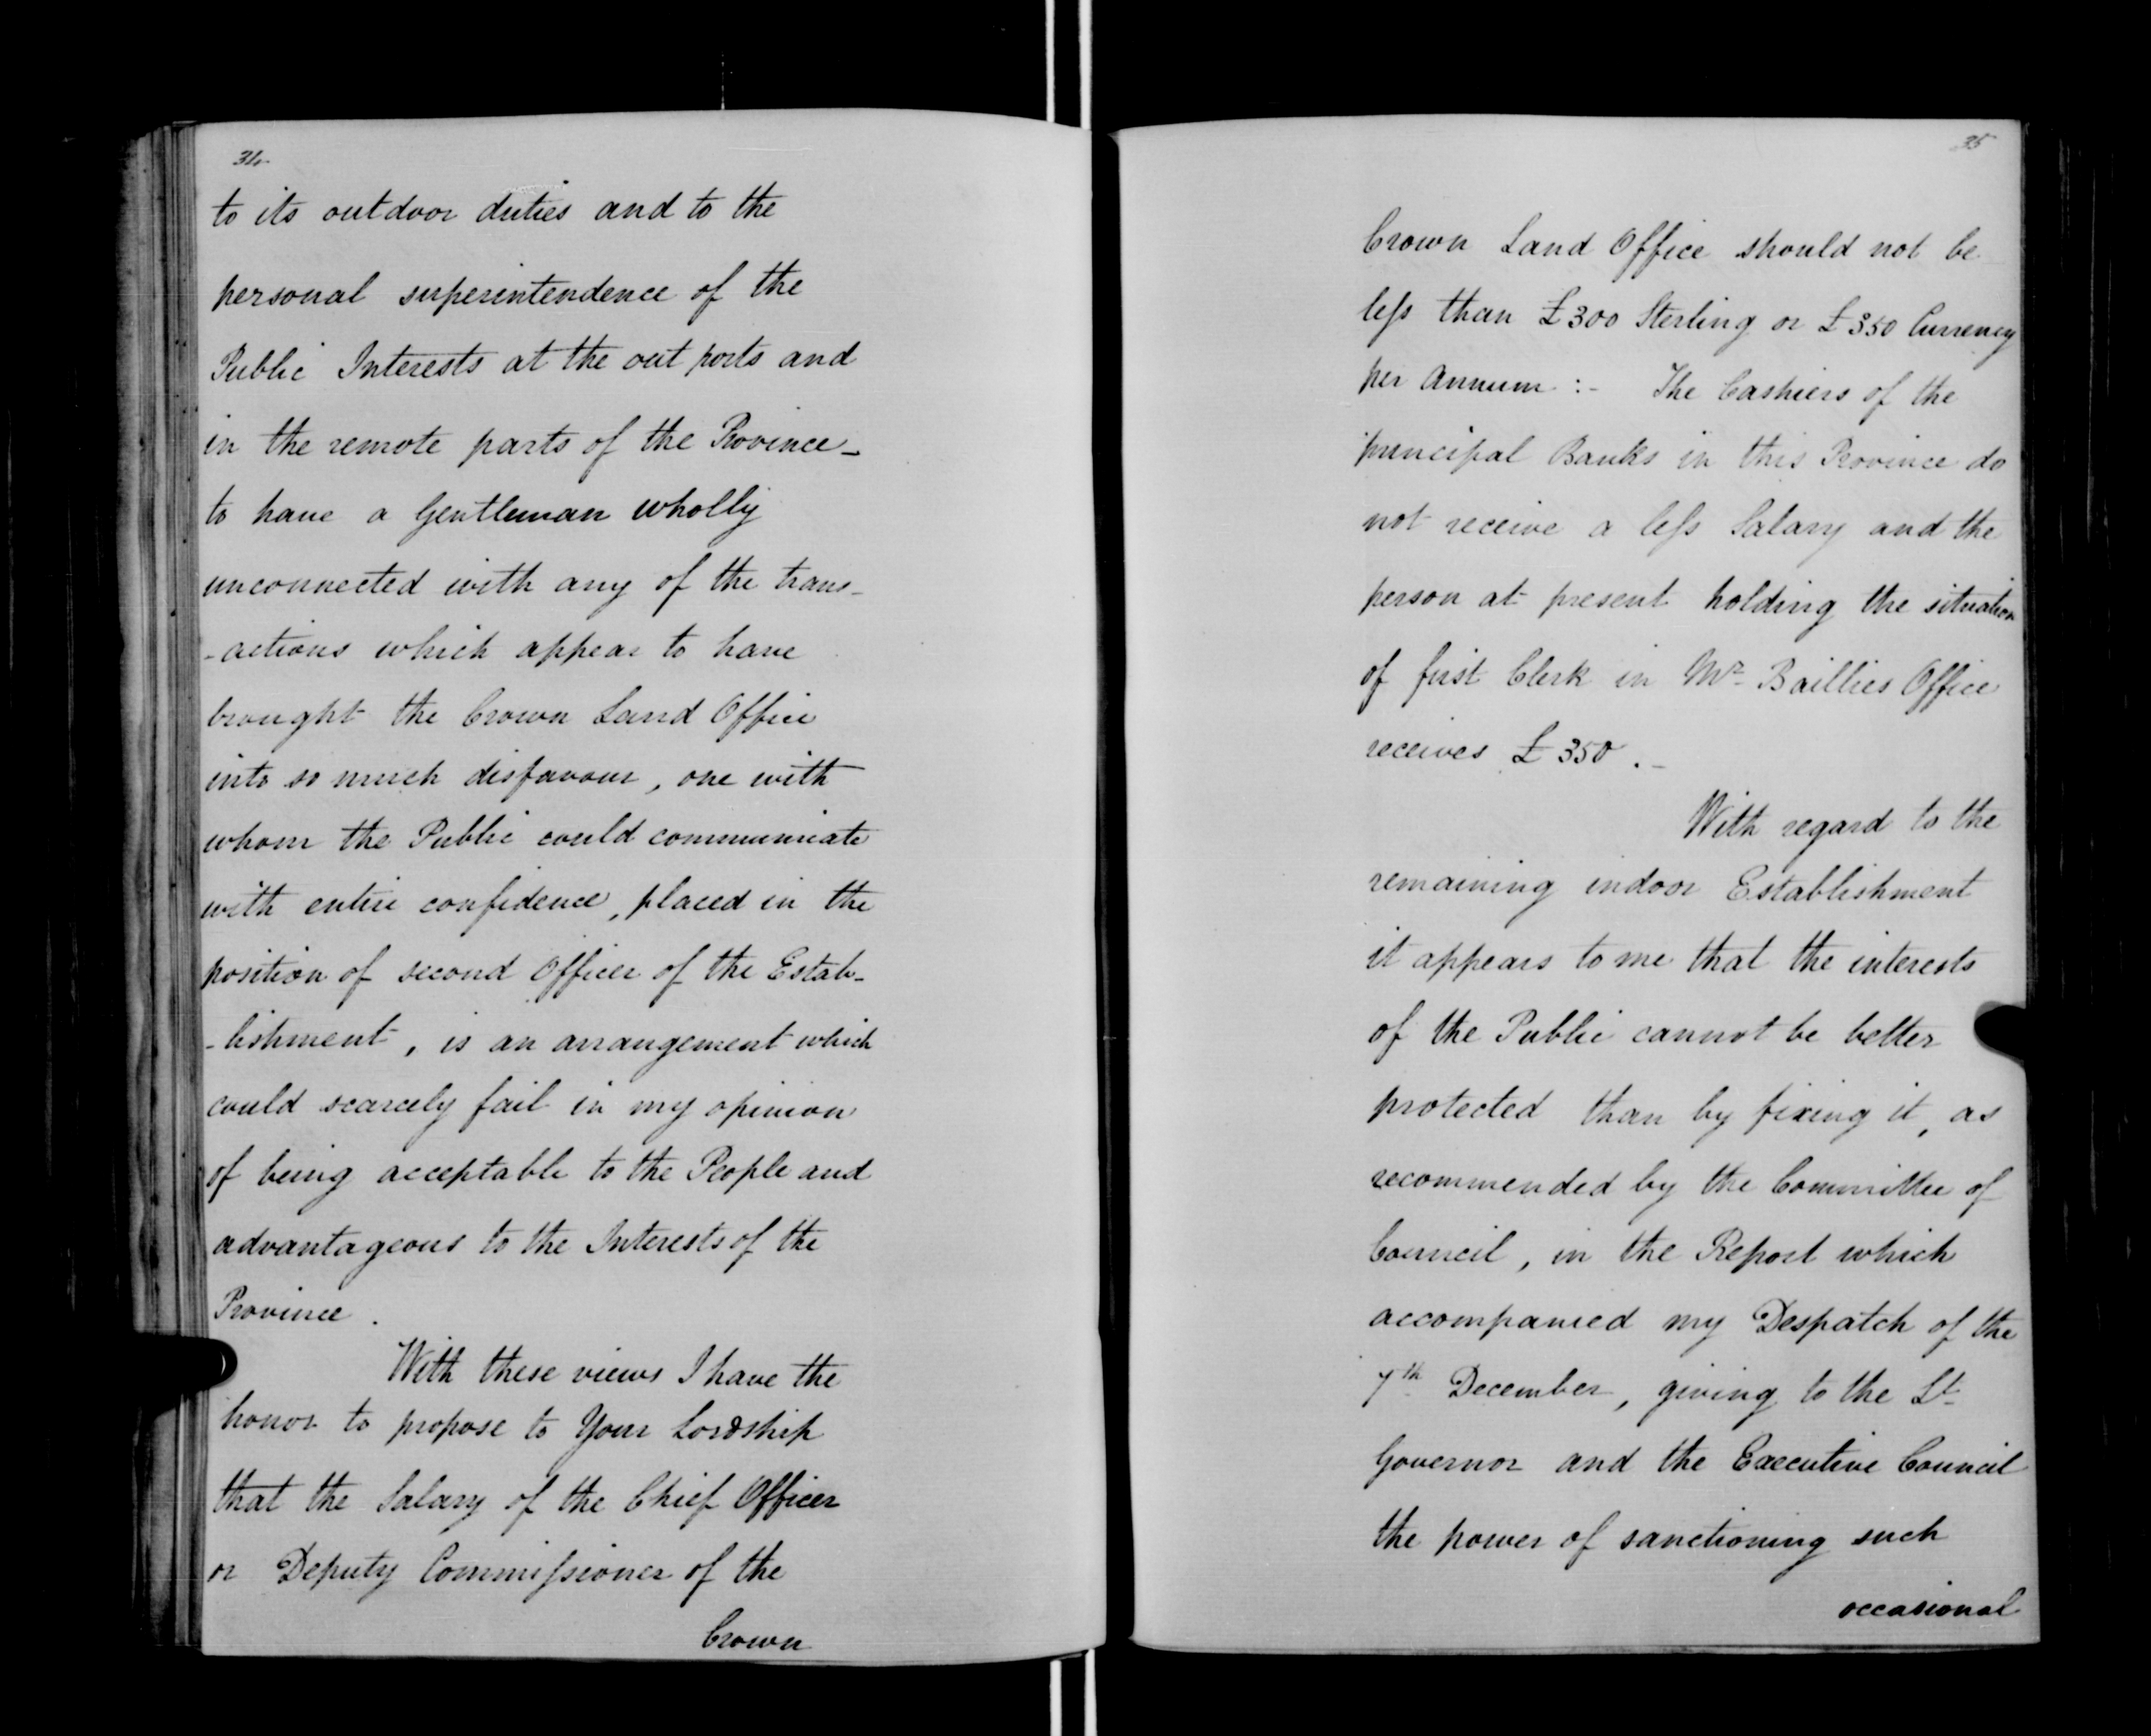 34
to its outdoor duties and to the
personal superintendence of the
Public Interests at the out ports and
in the remote parts of the Province_
to have a Gentleman wholly
unconnected with any of the trans_
-actions which appear to have
brought the Crown Land Office
into so much disfavour, one with
whom the Public could communicate
with entire confidence, placed in the
position of second Officer of the Estab_
-lishment, is an arrangement which
could scarcely fail in my opinion
of being acceptable to the People and
advantageous to the Interests of the
Province.
With these views I have the
honor to propose to Your Lordship
that the Salary of the Chief Officer
or Deputy Commiſsioner of the
Crown
35
Crown Land Office should not be
leſs than £300 Sterling or £350 Currency
per Annum :- The Cashiers of the
principal Banks in this Province do
not receive a leſs Salary and the
person at present holding the situation
of first Clerk in Mr Baillies Office
receives £350._
With regard to the
remaining indoor Establishment
it appears to me that the interests
of the Public cannot be better
protected than by fixing it, as
recommended by the Committee of
Council, in the Report which
accompanied my Despatch of the
7th December, giving to the Lt
Governor and the Executive Council
the power of sanctioning such
occasional